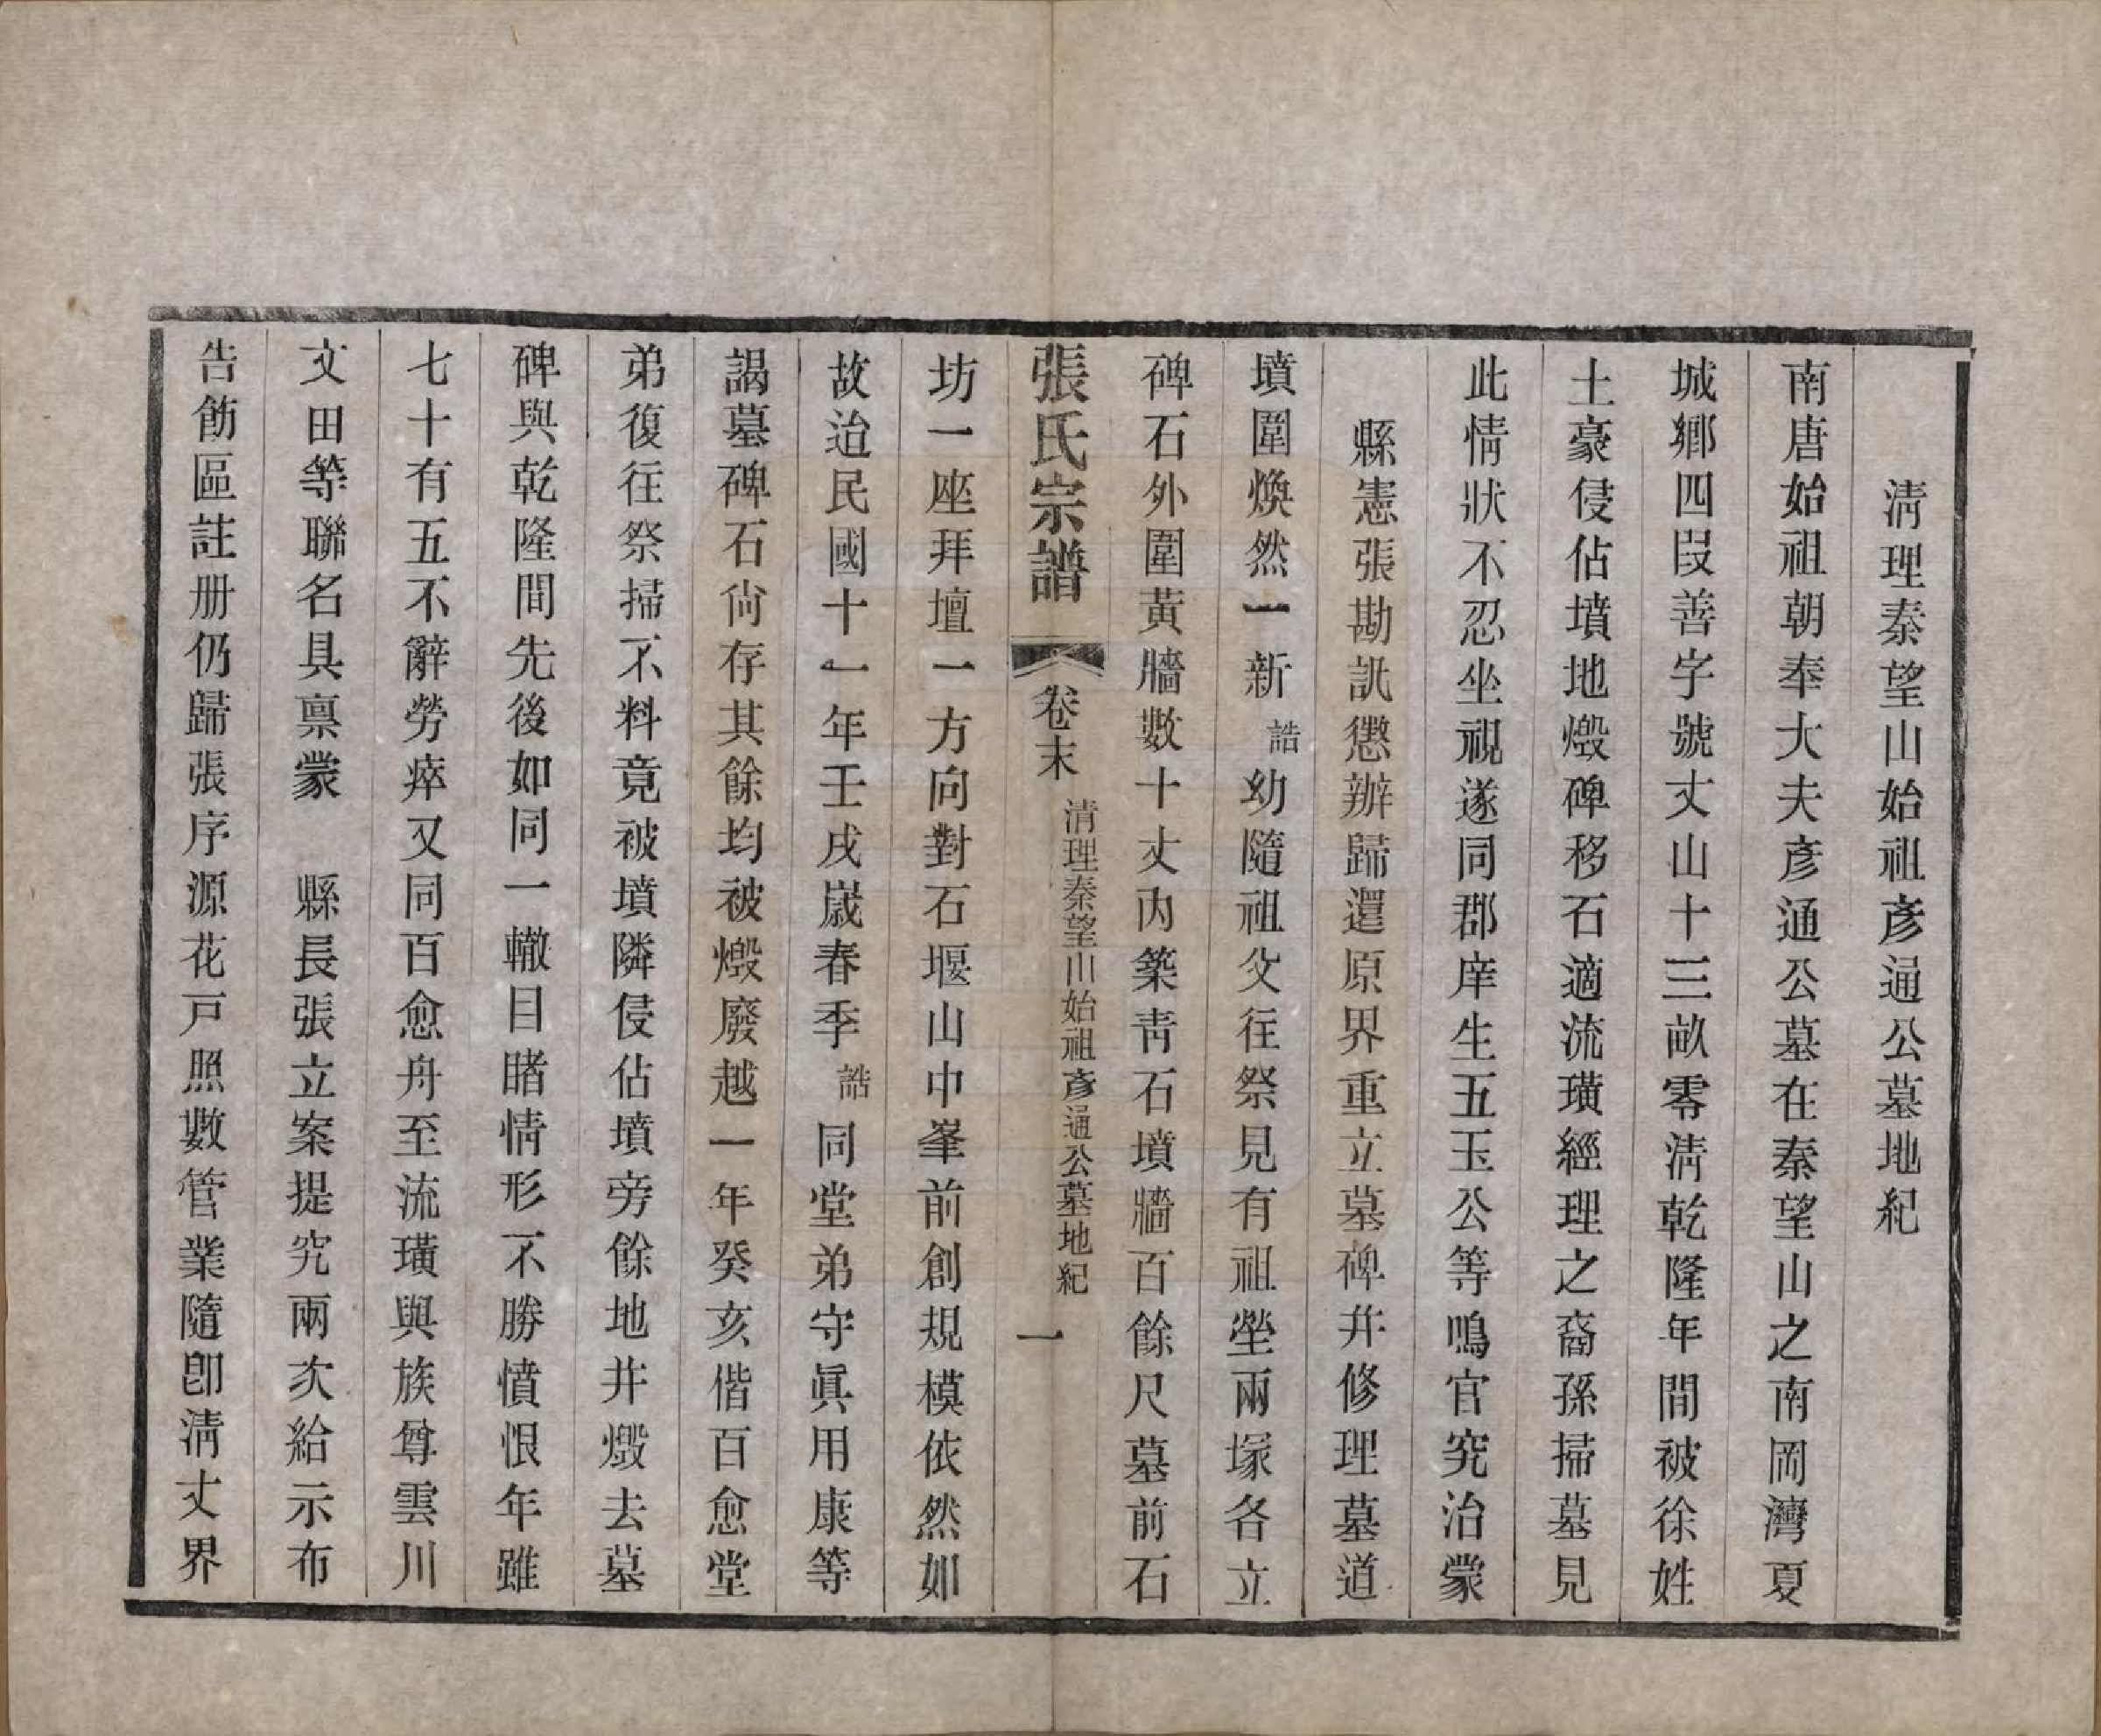 清理秦望山始祖彥通公墓地紀
南唐始祖朝奉大夫彥通公墓在秦望山之南岡灣夏
城鄉四段善字號丈山十三畝零清乾隆年間被徐姓
土豪侵佔墳地燬碑移石適流璜經理之裔孫掃墓見
此情狀不忍坐視遂同郡庠生五玉公等鳴官究治蒙
縣憲張勘訊懲辦歸還原界重立墓碑幷修理墓道
墳圍煥然一新誥幼隨祖父往祭見有祖塋兩塚各立
碑石外圍黃牆數十丈內築靑石墳牆百餘尺墓前石
張氏宗譜 卷末 清理秦望山始祖彥通公墓地紀 一
坊一座拜壇一方向對石堰山中峯前創規模依然如
故迨民國十一年壬戌歲春季誥同堂弟守眞用康等
謁墓碑石尙存其餘均被燬廢越一年癸亥偕百愈堂
弟復往祭掃不料竟被墳隣侵佔墳旁餘地井燬去墓
碑與乾隆間先後如同一轍目睹情形不勝憤恨年雖
七十有五不辭勞瘁又同百愈舟至流璜與族尊雲川
文田等聯名具禀蒙 縣長張立案提究兩次給示布
告飭區註册仍歸張序源花戸照數管業隨卽清丈界